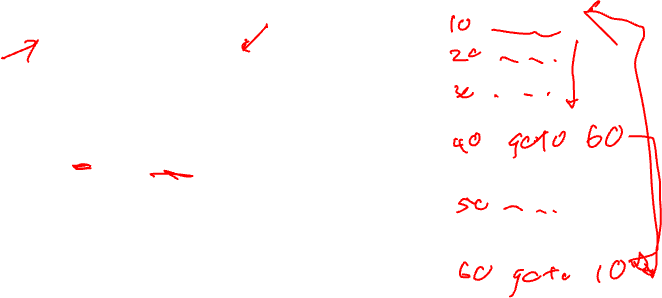 10
20
30
40 goto 60
50
60 goto 10